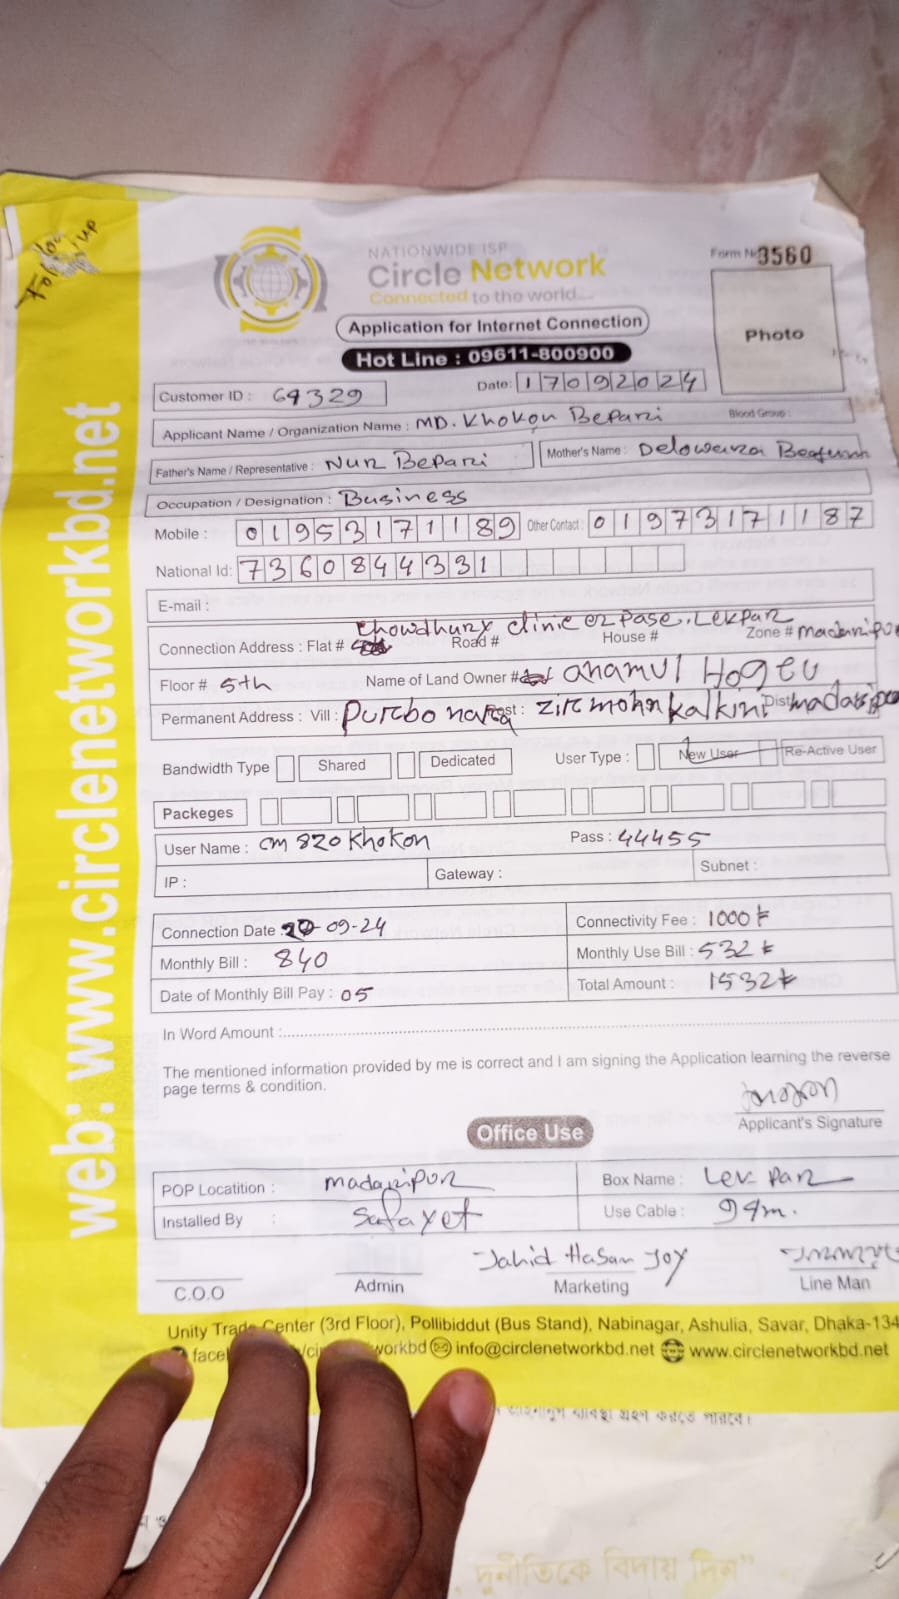 Follow up
NATIONWIDE ISP
Circle Network
Connected to the world...
Form № 3560
Application for Internet Connection
Hot Line : 09611-800900
Photo
web: www.circlenetworkbd.net
Customer ID : 69329 Date: 17092024
Applicant Name / Organization Name : MD. Khokon Bepari Blood Group :
Father's Name / Representative : Nur Bepari Mother's Name : Delowara
Occupation / Designation : Business
Mobile : 01953171189 Other Contact : 01973171187
National Id: 7360844331
E-mail :
Chowdhury clinic
Connection Address : Flat # Road # House # Zone # Madaripur
Floor # 5th Name of Land Owner # anamul
Permanent Address : Vill : Post : kalkini Dist:
Bandwidth Type Shared Dedicated User Type : New User Re-Active User
Packeges
User Name : cm820khokon Pass : 44455
IP : Gateway : Subnet :
Connection Date : -09-24 Connectivity Fee : 1000
Monthly Bill : 840 Monthly Use Bill : 532
Date of Monthly Bill Pay : 05 Total Amount : 1532
In Word Amount :
The mentioned information provided by me is correct and I am signing the Application learning the reverse
page terms & condition.
Applicant's Signature
Office Use
POP Locatition : madaripur Box Name : Lek par
Installed By : Safayet Use Cable : 94m.
Jahid Hasan Joy
C.O.O Admin Marketing Line Man
Unity Trade Center (3rd Floor), Pollibiddut (Bus Stand), Nabinagar, Ashulia, Savar, Dhaka-134
info@circlenetworkbd.net www.circlenetworkbd.net
ব্যবস্থা গ্রহণ করতে পারবে।
দুর্নীতিকে বিদায় দিন"